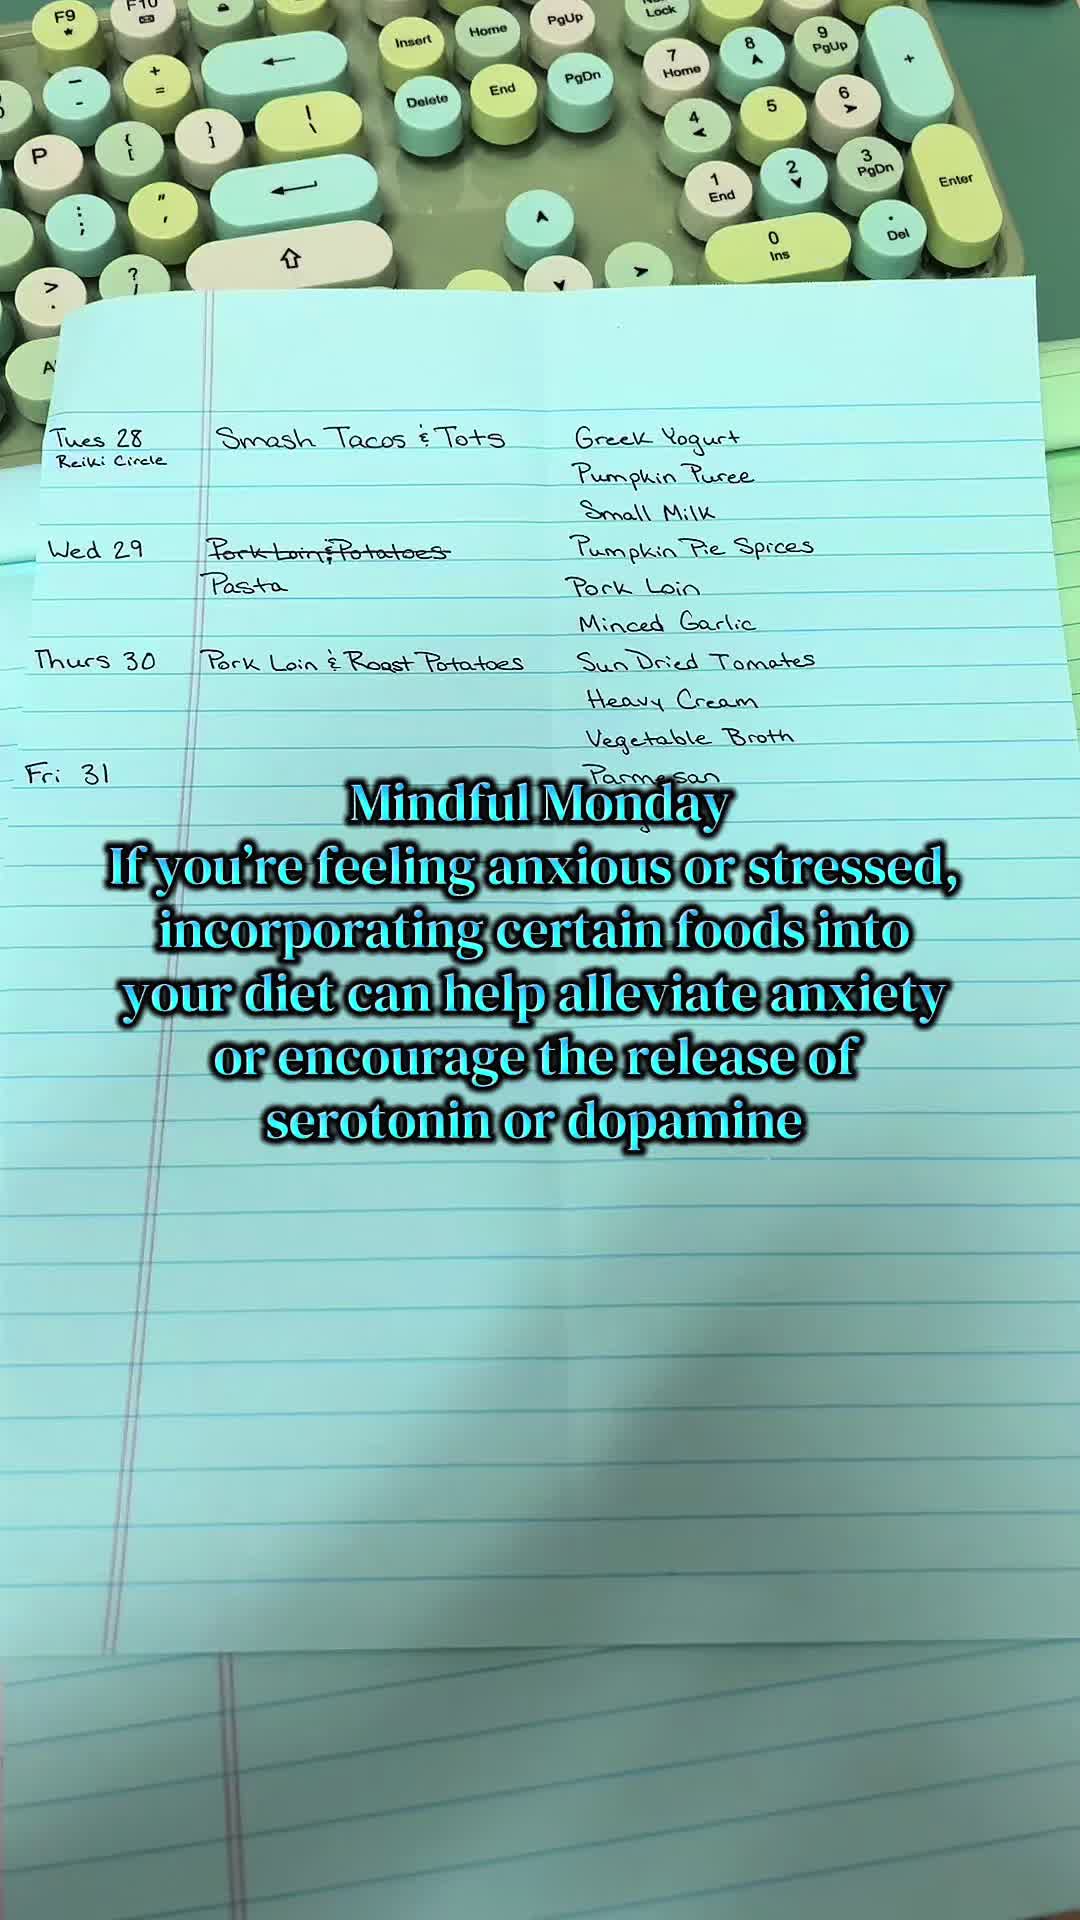 F9
F10
Insert
Home
PgUp
Lock
7
Home
8
9
PgUp
+
-
-
+
=
Delete
End
PgDn
4
5
6
P
{
[
}
]
|
\
1
End
2
3
PgDn
Enter
:
;
"
,
0
Ins
.
Del
>
.
?
/
Tues 28 Smash Tacos & Tots Greek Yogurt
Reiki Circle
Pumpkin Puree
Small Milk
Wed 29 Pork Loin & Potatoes Pumpkin Pie Spices
Pasta Pork Loin
Minced Garlic
Thurs 30 Pork Loin & Roast Potatoes Sun Dried Tomates
Heavy Cream
Vegetable Broth
Fri 31 Parmesan
Mindful Monday
If you're feeling anxious or stressed,
incorporating certain foods into
your diet can help alleviate anxiety
or encourage the release of
serotonin or dopamine